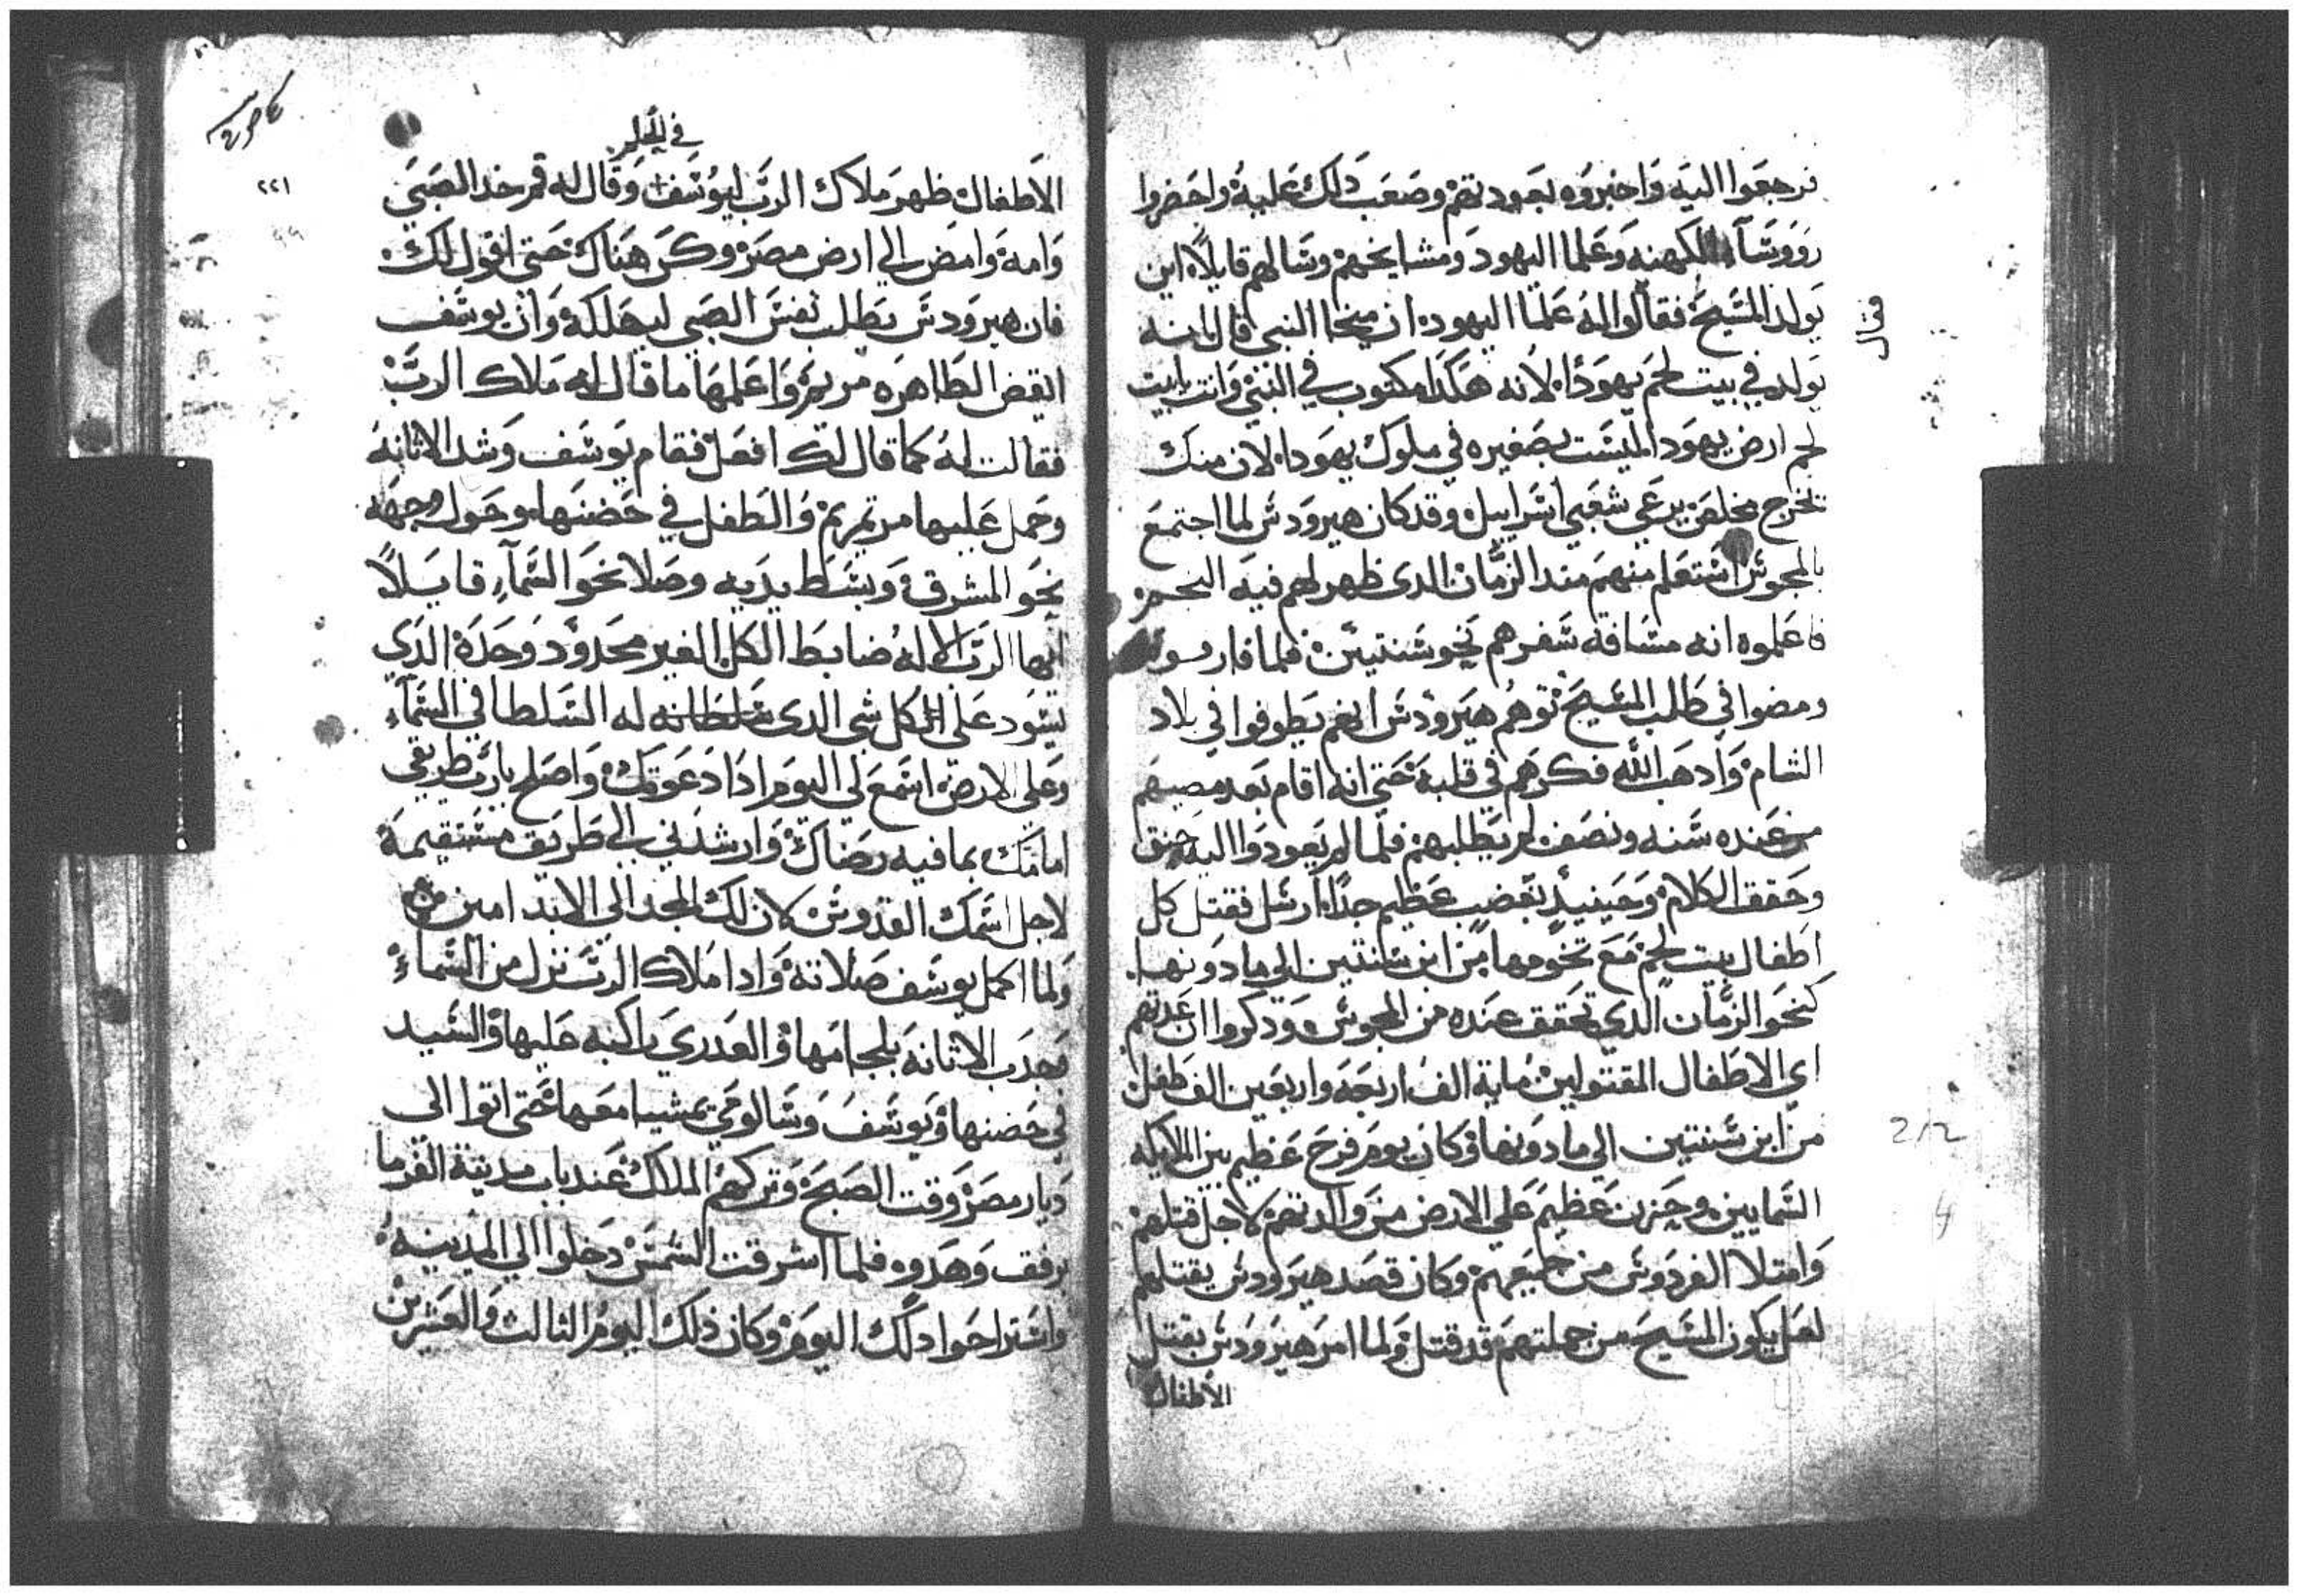 فرجعوا اليه واخبروه بعودتهم وصعب دلك عليه واحضروا
رووسآء الكهنه وعلما اليهود ومشايخهم وسالهم قايلاً اين
يولد المسيح فقالوا له علما اليهود ان ميخا النبي قال انه
يولد في بيت لحم يهودا لانه هكدا مكتوب في النبي وانت يابيت
لحم ارض يهودا ليست بصغيره في ملوك يهودا لان منك
تخرج مخلص يرعي شعبي اسراييل وقد كان هيرودس لما اجتمع
بالمجوس استعلم منهم مند الزمان الدى ظهر لهم فيه النجم
فاعلموه انه مسافة سفرهم نحو سنتين فلما فارقوه
ومضوا في طلب المسيح توهم هيرودس انهم يطوفوا في بلاد
الشام وادهب الله فكرهم في قلبه حتى انه اقام بعد مصيهم
من عنده سنه ونصف لم يطلبهم فلما لم يعودوا اليه حنق
وحقق الكلام وحينيدٍ بغضب عظيم جداً ارسل فقتل كل
اطفال بيت لحم مع تخومها من ابن سنتين الي ما دونها
كنحو الزمان الدي تحقق عنده من المجوس ودكروا ان عدتهم
اي الاطفال المقتولين ماية الف اربعه واربعين الف طفل
من ابن سنتين الي ما دونها وكان يوم فرح عظيم بين الملايكه
السماييين وحزن عظيم علي الارض من والدتهم لاجل قتلهم
وامتلا الفردوس من جميعهم وكان قصد هيرودس بقتلهم
لعل يكون المسيح من جملتهم قد قتل ولما امر هيرودس بقتل
الأطفال
فقال
2/2
4
في الحلم
٢٢١
الاطفال ظهر ملاك الرب ليوسف وقال له قم خد الصبي
وامه وامض الي ارض مصر وكن هناك حتى اقول لك
فان هيرودس يطلب نفس الصبي ليهلكه وان يوسف
ايقض الطاهره مريم واعلمها ما قال له ملاك الرب
فقالت له كما قال لك افعل فقام يوسف وشد الاثانه
وحمل عليها مرتمريم والطفل في حضنها وحول وجهه
نحو المشرق وبسط يديه وصلا نحو السمآء قايلاً
ايها الرب الاله ضابط الكل الغير محدود وحده الدي
يسود على كل شي الدى سلطانه له السلطا في السمآء
وعلي الارض اسمع لي اليوم ادا دعوتك واصلح يارب طريقي
امامك بما فيه رضاك وارشدني الي طريق مستقيمة
لاجل اسمك القدوس لان لك المجد الي الابد امين
ولما اكمل يوسف صلاته وادا ملاك الرب نزل من السماء
فجدب الاثانه بلجامها والعدري راكبه عليها والسيد
في حضنها ويوسف وسالومي يمشيا معها حتى اتوا الى
ديار مصر وقت الصبح وتركهم الملاك عند باب مدينة الفرما
برفق وهدوه فلما اشرقت الشمس دخلوا الي المدينه
واستراحوا دلك اليوم وكان ذلك اليوم الثالث والعشرين